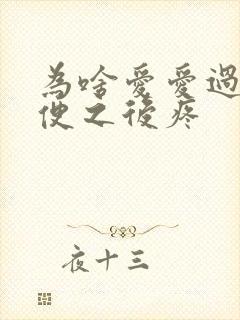 為啥愛愛過
便之後疼
夜十三